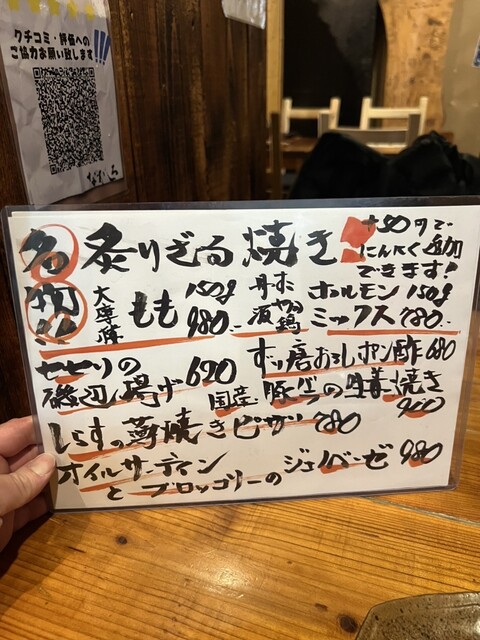 クチコミ・評価への
ご協力お願い致します!!!
名物!! 炙りざる焼き
+50円で
にんにく追加
できます!
もも 150g 980.
ホルモン 150g
ミックス 780.
セセリの
磯辺揚げ 690
ずり唐おろしポン酢 680
国産 豚バラの生姜焼き
900
しらすの薄焼きピザ 780
オイルサーディン
とブロッコリーの ジェノベーゼ 980